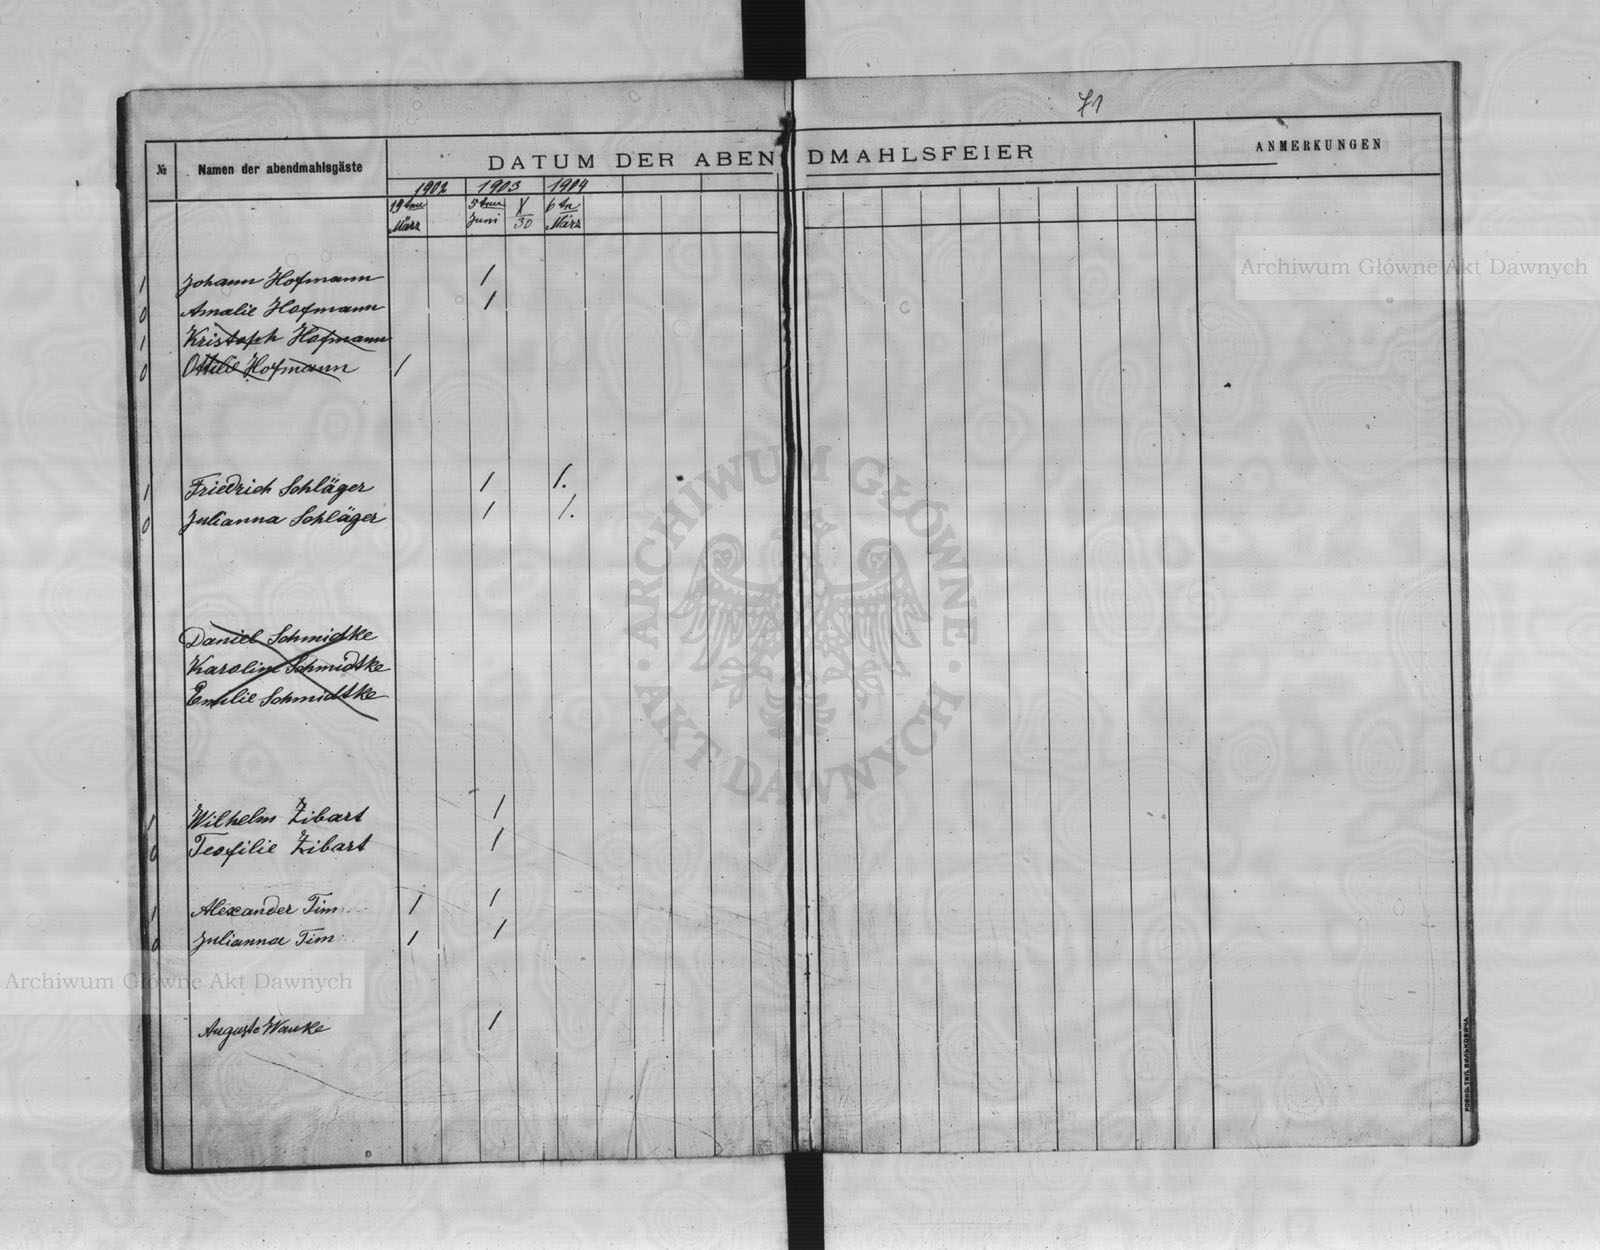 71
№ Namen der abendmahlsgäste DATUM DER ABENDMAHLSFEIER ANMERKUNGEN
1902 1903 1904
19ten März 5ten Juni X/30 6tn März
1 Johann Hofmann 1
0 Amalie Hofmann 1
1 Kristoph Hofmann
0 Ottilie Hofmann 1
1 Friedrich Schläger 1 1.
0 Julianna Schläger 1 1.
Daniel Schmidtke
Karoline Schmidtke
Emilie Schmidtke
1 Wilhelm Zibart 1
0 Teofilie Zibart 1
1 Alexander Tim 1 1
0 Julianna Tim 1 1
Auguste Wanke 1
Archiwum Główne Akt Dawnych
ARCHIWUM GŁÓWNE
AKT DAWNYCH
Archiwum Główne Akt Dawnych
РОВНО, ТИП. ВИЛЬКОВИЧА